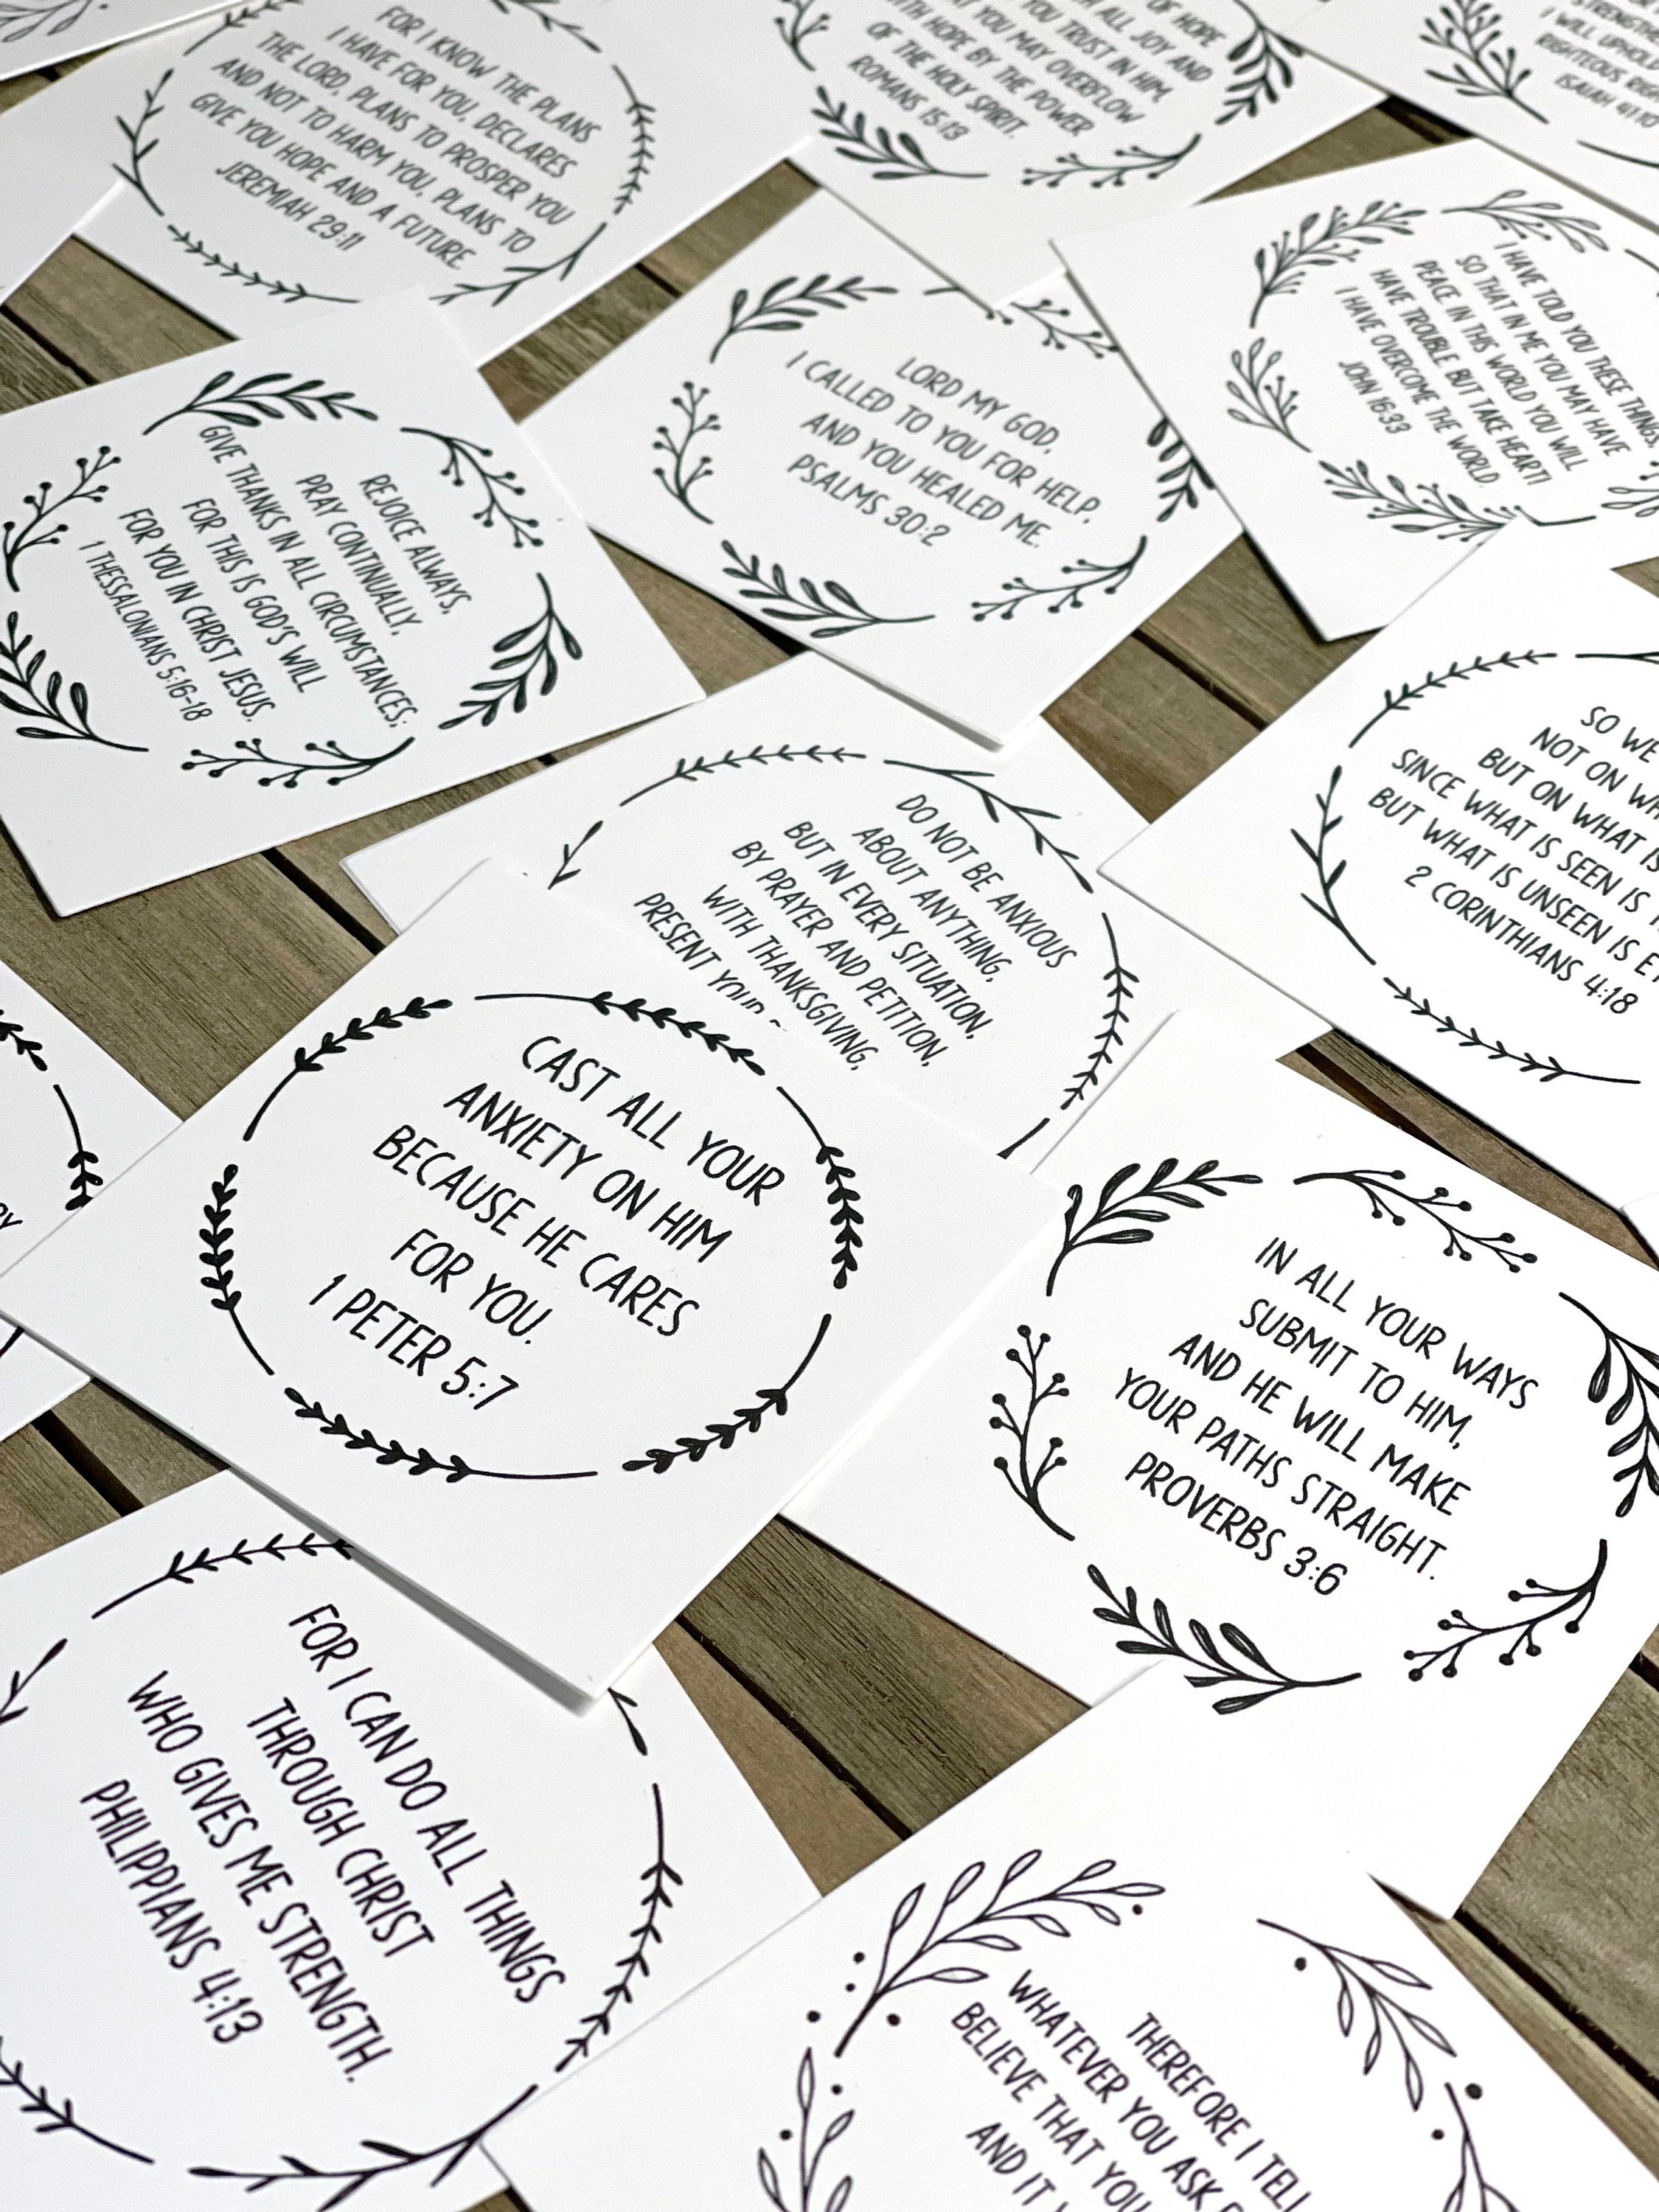 FOR I KNOW THE PLANS
I HAVE FOR YOU, DECLARES
THE LORD, PLANS TO PROSPER YOU
AND NOT TO HARM YOU, PLANS TO
GIVE YOU HOPE AND A FUTURE.
JEREMIAH 29:11
OF HOPE
ALL JOY AND
YOU TRUST IN HIM,
YOU MAY OVERFLOW
HOPE BY THE POWER
OF THE HOLY SPIRIT.
ROMANS 15:13
I WILL UPHOLD
RIGHTEOUS
ISAIAH 41:10
I HAVE TOLD YOU THESE THINGS,
SO THAT IN ME YOU MAY HAVE
PEACE IN THIS WORLD YOU WILL
HAVE TROUBLE. BUT TAKE HEART!
I HAVE OVERCOME THE WORLD.
JOHN 16:33
LORD MY GOD,
I CALLED TO YOU FOR HELP,
AND YOU HEALED ME.
PSALMS 30:2
REJOICE ALWAYS,
PRAY CONTINUALLY,
GIVE THANKS IN ALL CIRCUMSTANCES;
FOR THIS IS GOD'S WILL
FOR YOU IN CHRIST JESUS.
1 THESSALONIANS 5:16-18
SO WE
NOT ON
BUT ON WHAT IS
SINCE WHAT IS SEEN IS
BUT WHAT IS UNSEEN IS
2 CORINTHIANS 4:18
DO NOT BE ANXIOUS
ABOUT ANYTHING,
BUT IN EVERY SITUATION,
BY PRAYER AND PETITION,
WITH THANKSGIVING,
PRESENT YOUR
CAST ALL YOUR
ANXIETY ON HIM
BECAUSE HE CARES
FOR YOU.
1 PETER 5:7
IN ALL YOUR WAYS
SUBMIT TO HIM,
AND HE WILL MAKE
YOUR PATHS STRAIGHT.
PROVERBS 3:6
FOR I CAN DO ALL THINGS
THROUGH CHRIST
WHO GIVES ME STRENGTH.
PHILIPPIANS 4:13
THEREFORE I TELL
WHATEVER YOU ASK
BELIEVE THAT YOU
AND IT